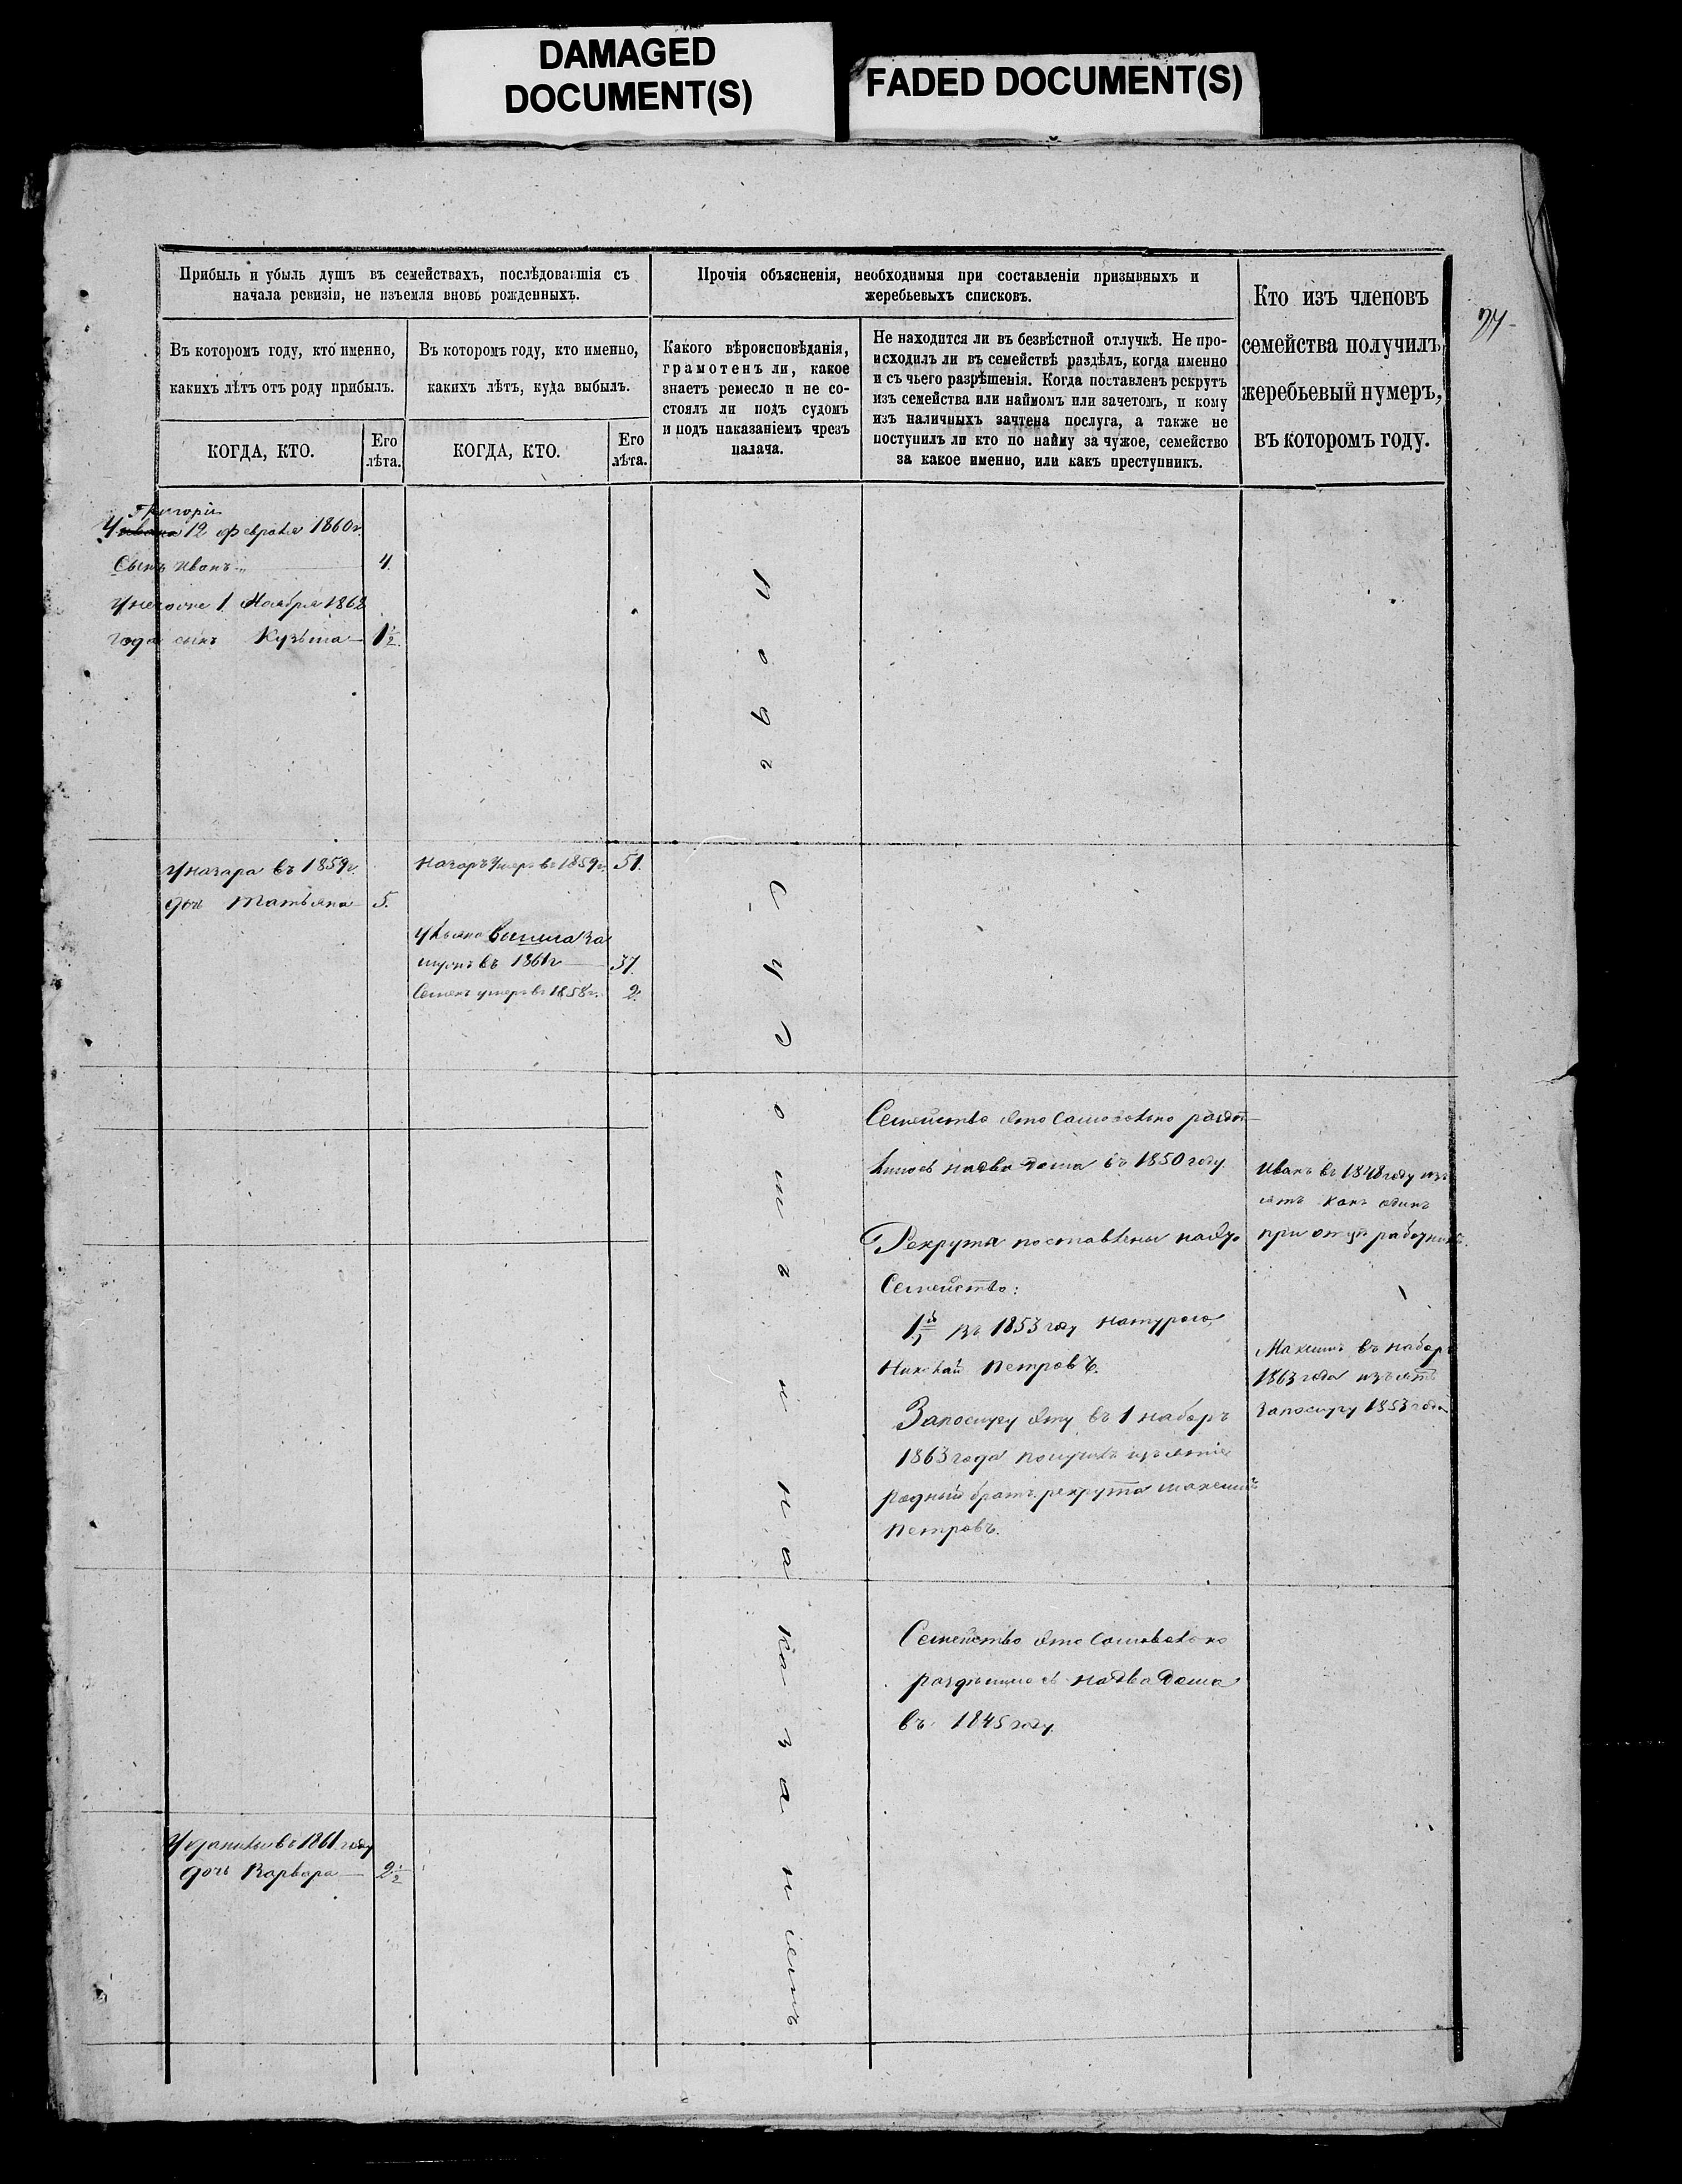 DAMAGED
DOCUMENT(S)
FADED DOCUMENT(S)
Прибыль и убыль душъ въ семействахъ, послѣдовавшія съ
начала ревизіи, не изъемля вновь рожденныхъ.
Прочія объясненія, необходимыя при составленіи призывныхъ и
жеребьевыхъ списковъ.
Кто изъ членовъ
семейства получилъ
жеребьевый нумеръ,
въ которомъ году.
Въ которомъ году, кто именно,
какихъ лѣтъ отъ роду прибылъ.
Въ которомъ году, кто именно,
какихъ лѣтъ, куда выбылъ.
Какого вѣроисповѣданія,
грамотенъ ли, какое
знаетъ ремесло и не со-
стоялъ ли подъ судомъ
и подъ наказаніемъ чрезъ
палача.
Не находится ли въ безвѣстной отлучкѣ. Не про-
исходилъ ли въ семействѣ раздѣлъ, когда именно
и съ чьего разрѣшенія. Когда поставленъ рекрутъ
изъ семейства или наймомъ или зачетомъ, и кому
изъ наличныхъ зачтена послуга, а также не
поступилъ ли кто по найму за чужое, семейство
за какое именно, или какъ преступникъ.
КОГДА, КТО.
Его
лѣта.
КОГДА, КТО.
Его
лѣта.
Григорія
У Ивана 12 февраля 1860 г.
Сынъ Иванъ 4.
У него же 1 Ноября 1862
года сынъ Кузьма 1½
У назара въ 1859 г.
дочь Татьяна 5.
Назаръ умеръ въ 1859 г. 51.
Ульяна вышла за
мужъ въ 1861 г 37.
Семенъ умеръ въ 1858 г. 2.
въ 1861 году
дочь Варвара 2½
подъ судомъ и наказаніемъ
Семейство это самовольно раздѣ
лилось на два дома въ 1850 году.
Рекрута поставлены на это
Семейство:
1й въ 1853 году натурою,
Николай Петровъ.
За послугу эту въ 1 наборъ
1863 года получилъ изъятіе
родный братъ рекрута максимъ
Петровъ.
Иванъ въ 1848 году изъ
ятъ какъ одинъ
при отцѣ работникъ.
Максимъ въ наборъ
1863 года изъятъ
за послугу 1853 года
Семейство это самовольно
раздѣлилось на два дома
въ 1845 году.